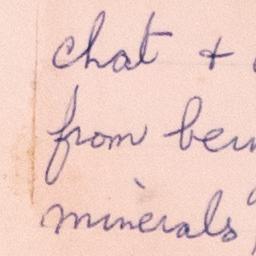 chat +
from
minerals